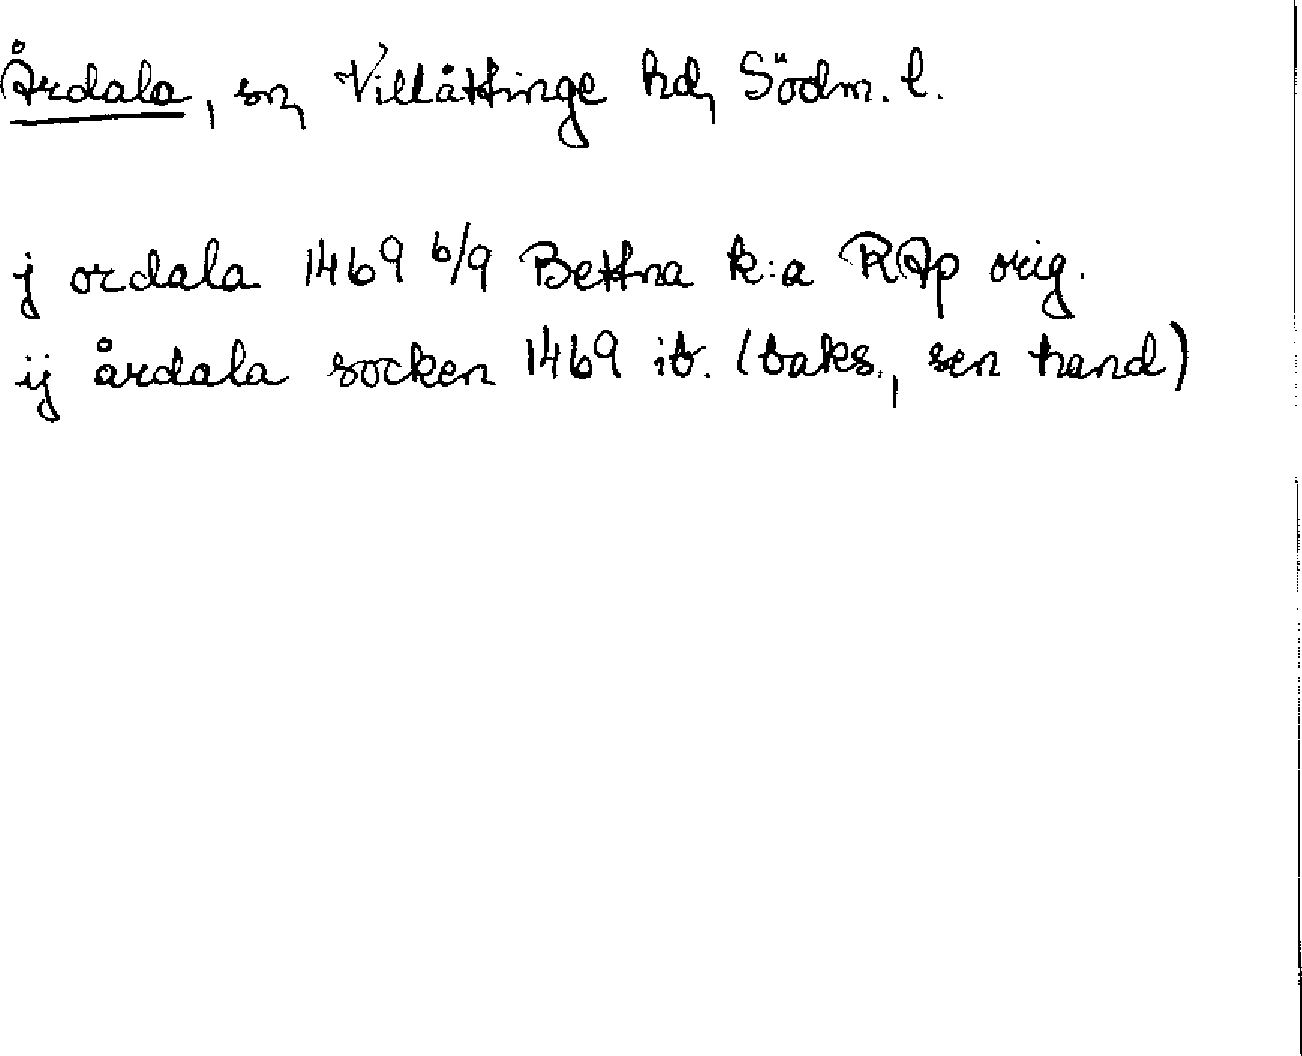 Årdala, sn, Villåttinge hd, Södm. l.
j ordala 1469 6/9 Bettna k:a RAp orig.
ij årdala socken 1469 ib. (baks., sen hand)